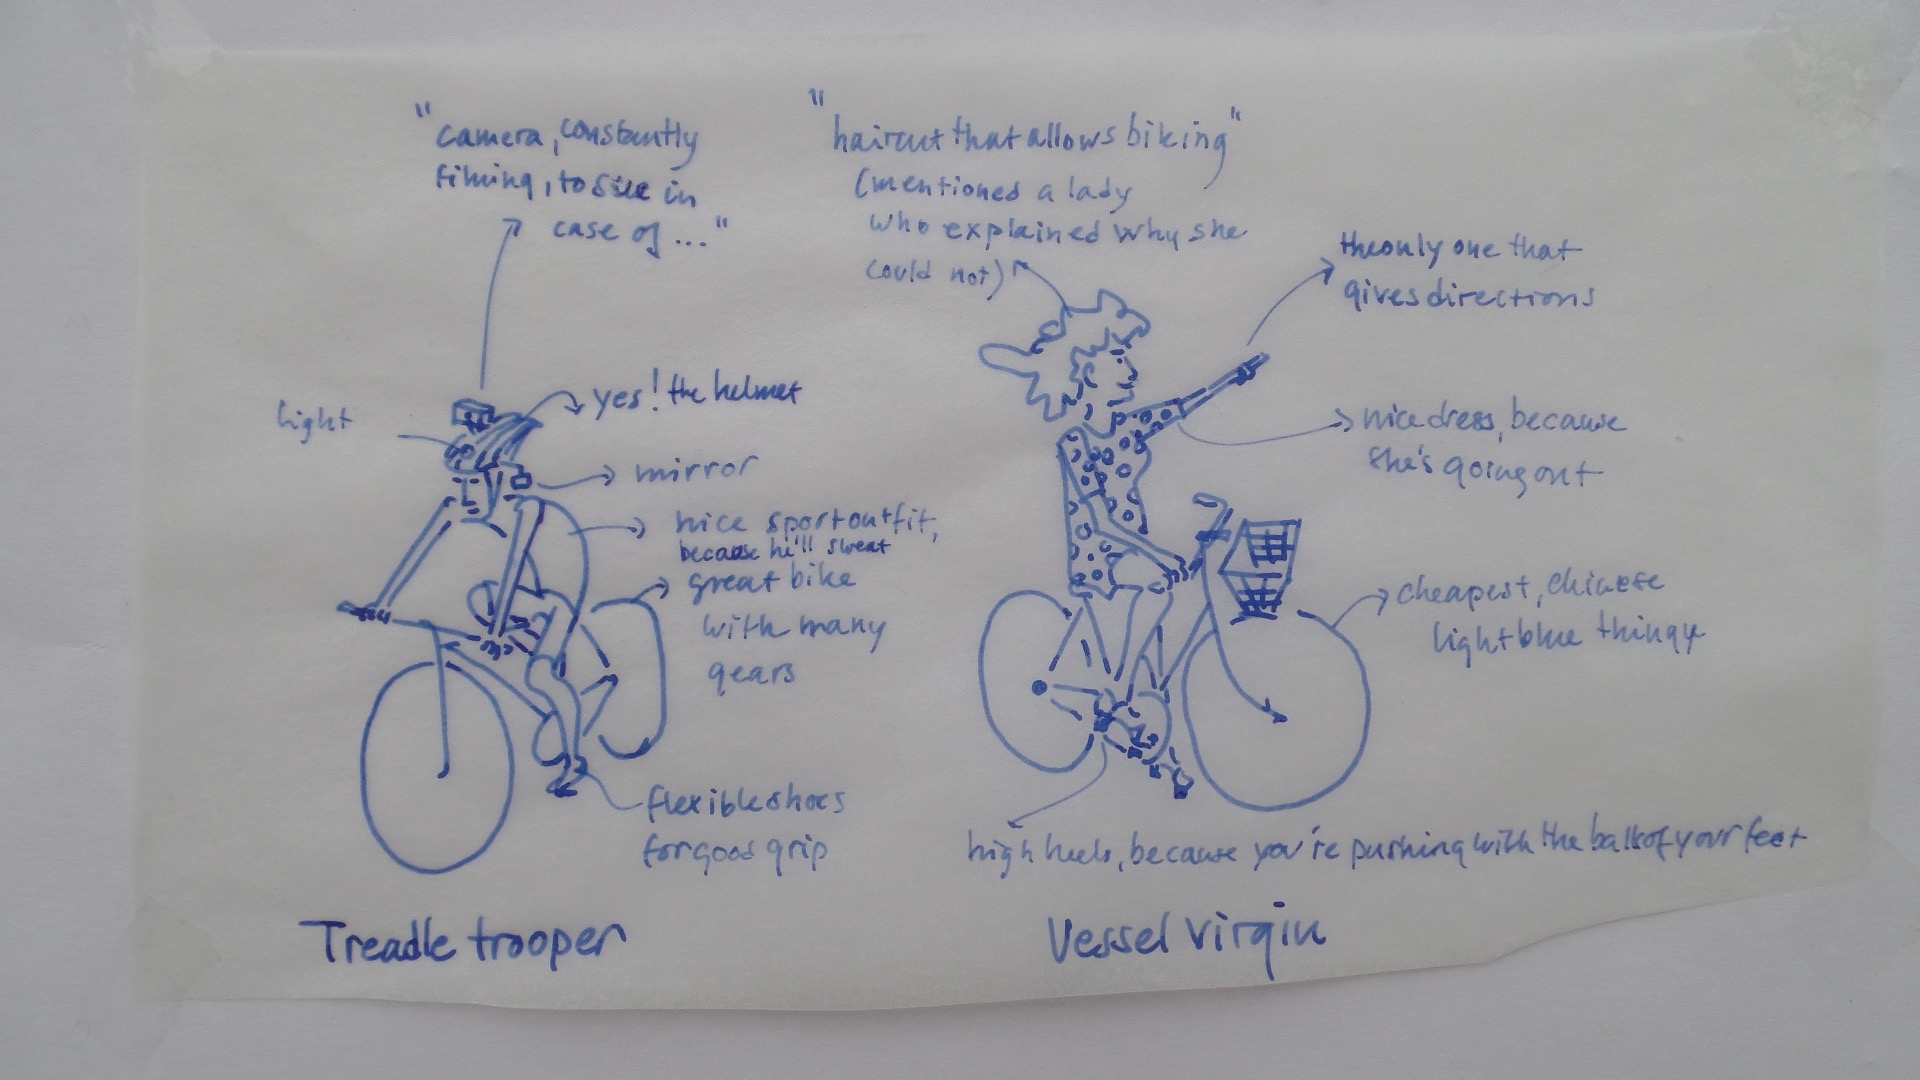 "camera, constantly
filming, to see in
case of ..."
light
yes! the helmet
mirror
nice sport outfit,
because he'll sweat
great bike
with many
gears
flexible shoes
for good grip
Treadle trooper
"haircut that allows biking"
(mentioned a lady
who explained why she
could not)
the only one that
gives directions
nice dress, because
she's going out
cheapest, chinese
lightblue thingy
high heels, because you're pushing with the balls of your feet
Vessel virgin